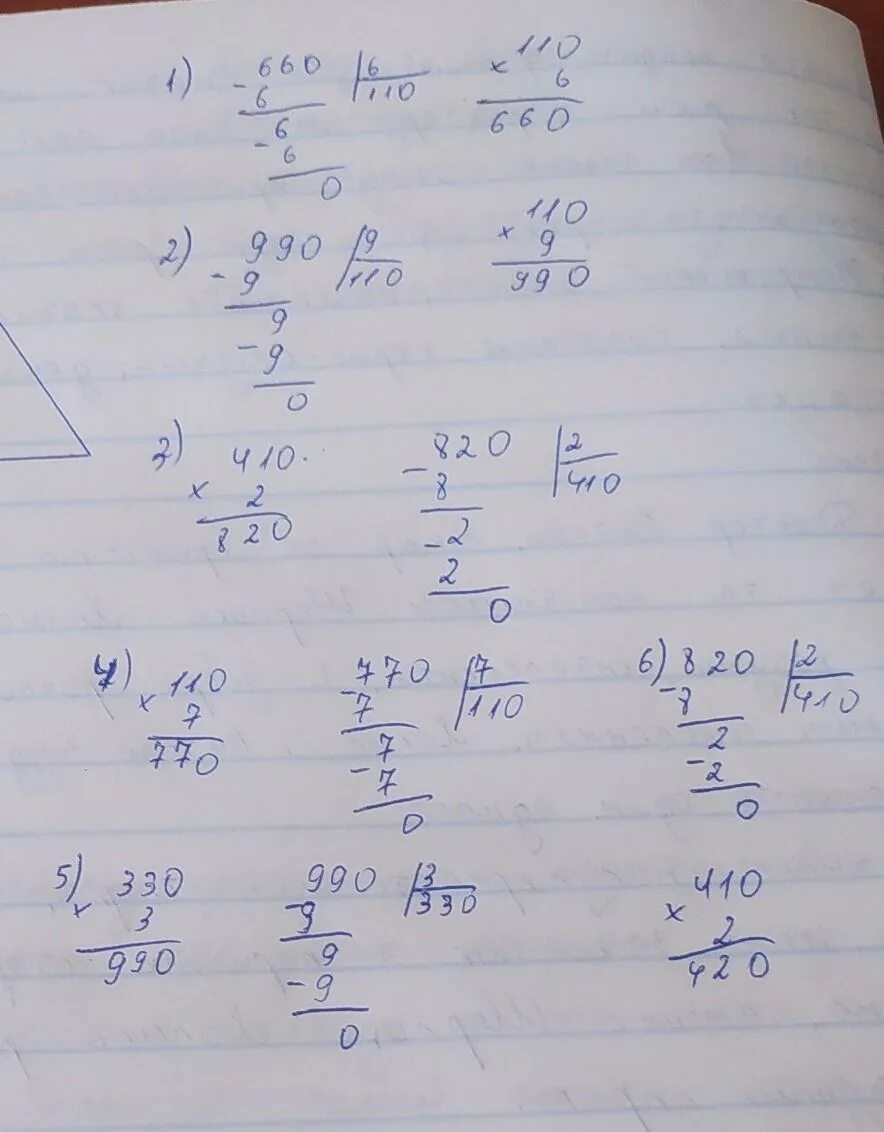 1) - 660 |6
6 110
- 6
6
0
× 110
6
660
2) 990 |9
- 9 110
9
- 9
0
× 110
9
990
3) 410
× 2
820
- 820 |2
8 410
- 2
2
0
4) × 110
7
770
- 770 |7
7 110
7
- 7
0
6) 820 |2
- 8 410
2
- 2
0
5) 330
× 3
990
990 |3
- 9 330
9
- 9
0
410
× 2
420